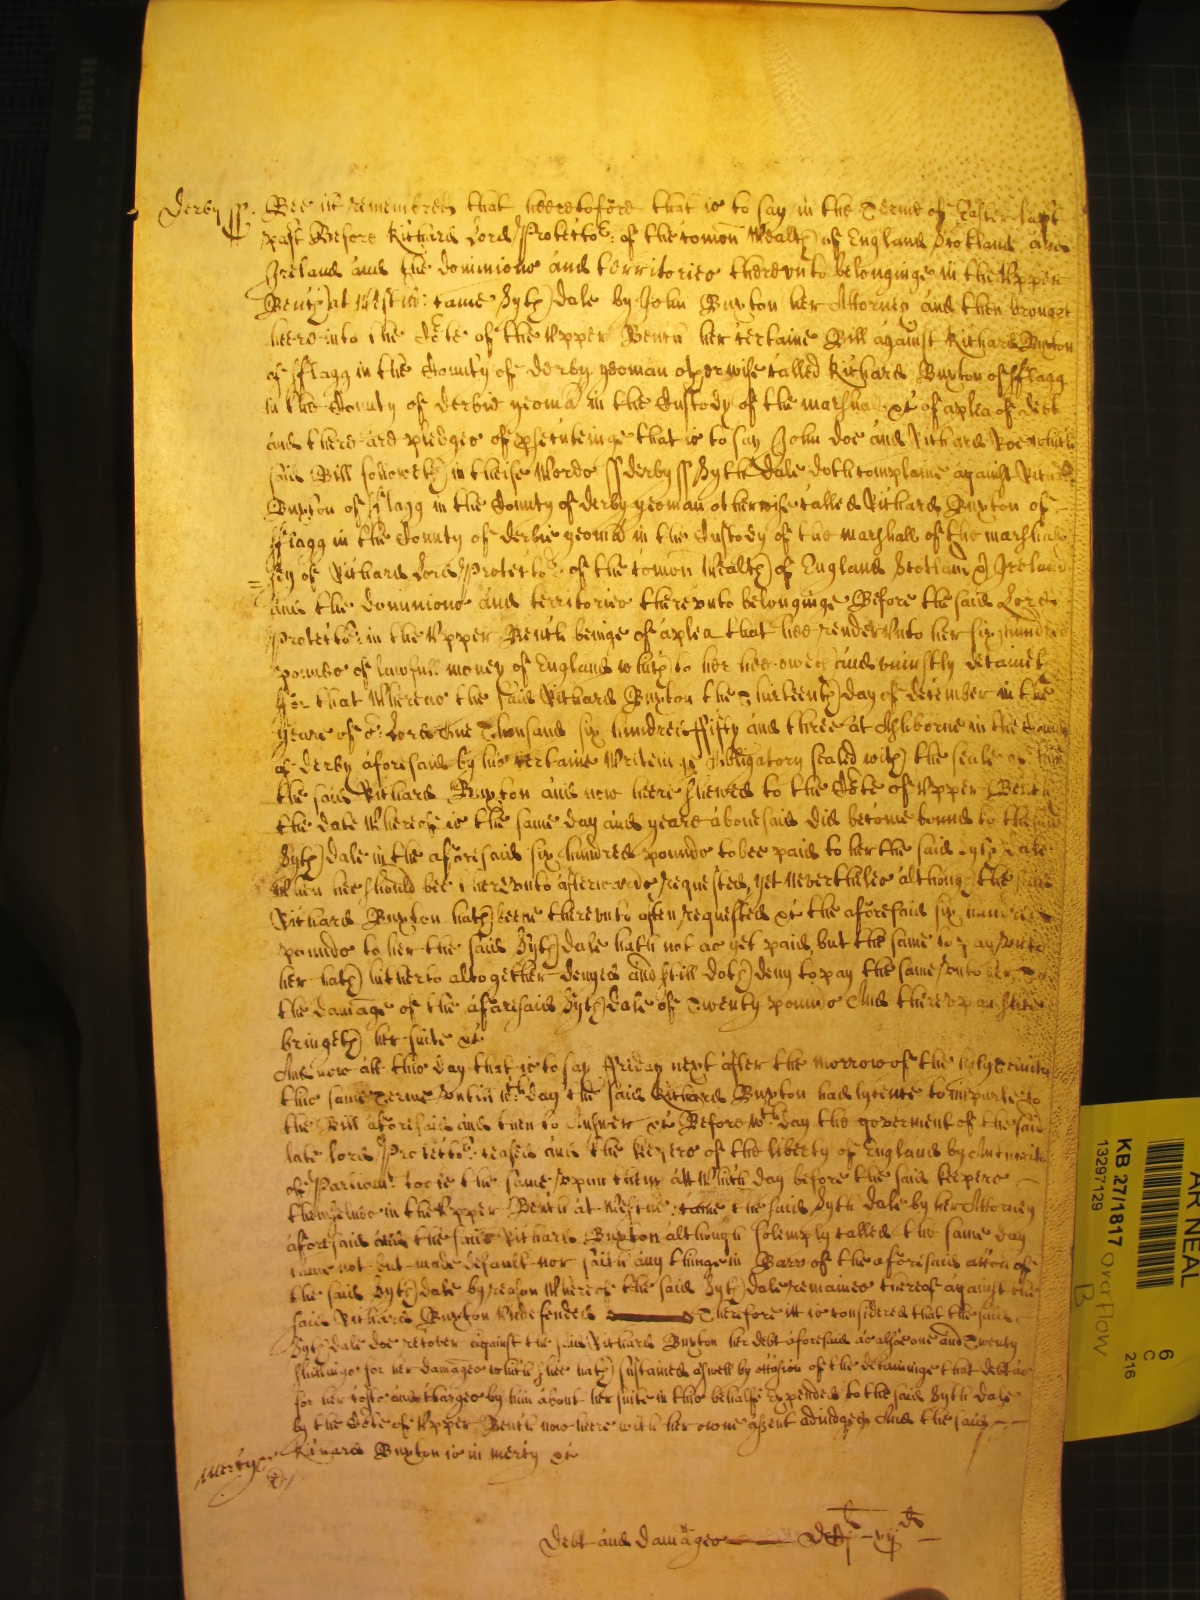 Derby ss. Bee it remembred that heeretofore that is to say in the Terme of Easter last
past Before Richard Lord Protecto:r of the com̄on Wealth of England Scotland and
Ireland and the dominions and territories therevnto belonginge in the Vpper
Bench at Westm̄: came Zyth Dale by John Buxton her Attorney and then brought
heere into the Co:te of the Vpper Bench her certaine Bill against Richard Buxton
of fflagg in the County of Derby yeoman otherwise called Richard Buxton of fflagg
in the County of Derbie yeomā in the Custody of the marshall &c of a plea of debt
and there are pledges of psecuteinge that is to say John Doe and Richard Roe which
said Bill followeth in theise Words ss Derby ss Zyth Dale doth complaine against Richard
Buxton of fflagg in the County of Derby yeoman otherwise called Richard Buxton of
fflagg in the County of Derbie yeomā in the Custody of the marshall of the marshall
sey of Richard Lord Protecto:r of the com̄on Wealth of England Scotland & Ireland
and the dominions and territories therevnto belonginge Before the said Lord
Protecto:r in the Vpper Bench beinge of a plea that hee render vnto her six hundred
pounds of lawfull money of England which to her hee oweth and vniustly detaineth
ffor that Whereas the said Richard Buxton the Thirteenth day of December in the
yeare of o:r Lord One Thousand six hundred ffifty and three at Ashborne in the County
of Derby aforesaid by his certaine Writeinge Obligatory sealed with the seale of him
the said Richard Buxton and now heere shewed to the Co:te of Vpper Bench
the date Whereof is the same day and yeare abouesaid did become bound to the said
Zyth Dale in the aforesaid six hundred pounds to bee paid to her the said Zyth Dale
When hee should bee therevnto afterwards requested, yet Neverthelес although the said
Richard Buxton hath beene therevnto often requested &c the aforesaid six hundred
pounds to her the said Zyth Dale hath not as yet paid, but the same to pay vnto
her hath hitherto altogether denyed and still doth deny to pay the same vnto her To
the damage of the aforesaid Zyth Dale of Twenty pounds And therevpon shee
bringeth her suite &c
And now att this day that is to say ffriday next after the morrow of the holy Trinity
this same Terme vntill w:ch day the said Richard Buxton had lycence to imparle to
the Bill aforesaid and then to Answer &c Before w:ch day the goverment of the said
late lord Protecto:r ceased and the keepers of the liberty of England by Authoritie
of Parliam:t tooke the same vpon them att Which day before the said keepers
themselves in the Vpper Bench at Westm̄: came the said Zyth Dale by her Attorney
aforesaid and the said Richard Buxton although solemply called the same day
came not but made default nor saith any thinge in Barr of the aforesaid acc̄on of
the said Zyth Dale by reason Whereof the said Zyth Dale remaines thereof against the
said Richard Buxton Vndefended Therefore itt is considered that the said
Zyth Dale doe recover against the said Richard Buxton her debt aforesaid as alsoe one and Twenty
shillings for her damages which shee hath sustained aswell by occasion of the detaininge that debt as
for her costs and charges by him about her suite in this behalfe expended to the said Zyth Dale
by the Co:te of Vpper Bench now heere with her owne assent adiudged And the said
Richard Buxton is in mercy &c
Mercy
Debt and damages
HAISER
AR NEAL
KB 27/1817
13297129
6
C
216
Overflow
B